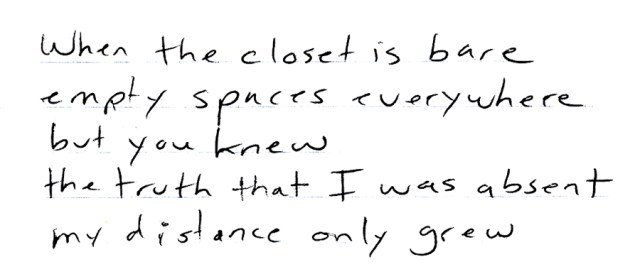 When the closet is bare
empty spaces everywhere
but you knew
the truth that I was absent
my distance only grew